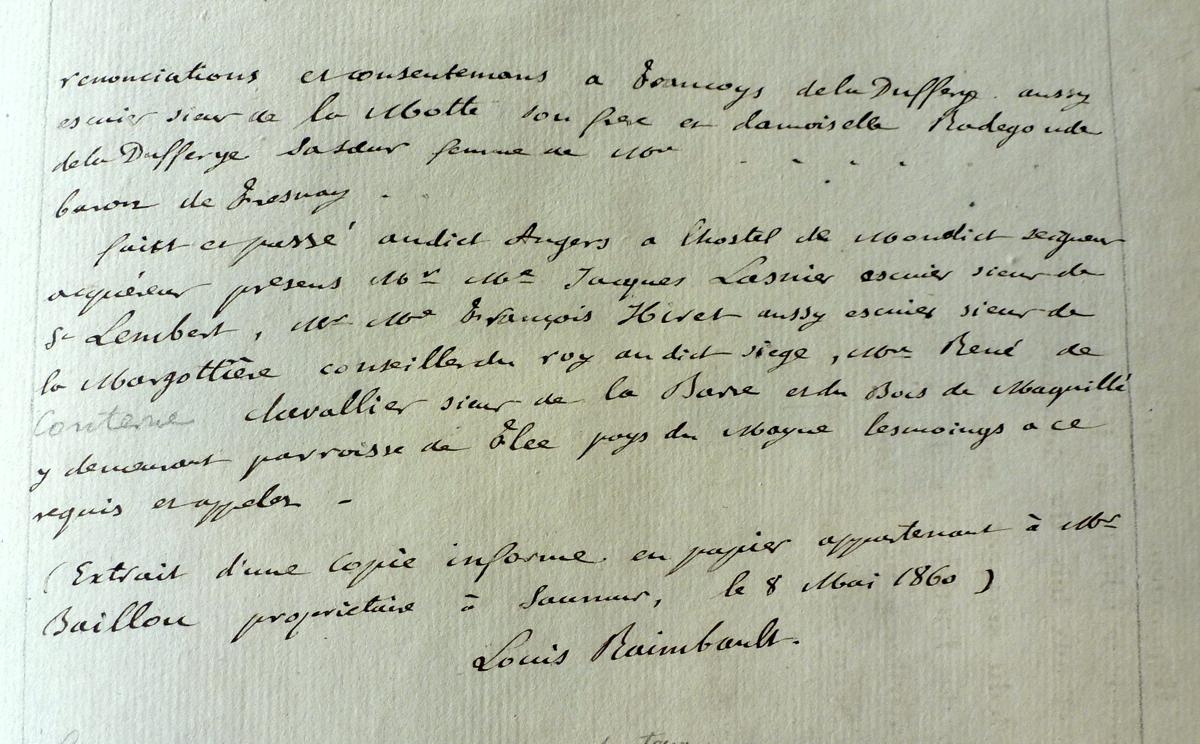 renonciations et consentemans a Francoys de la Dufferye aussy
escuier sieur de la Motte son frere et damoiselle Radegonde
de la Dufferye sa sœur femme de Mre . . . .
baron de Fresnay .
faict et passé audict Angers a lhostel de Mondict seigneur
acquéreur présens Mr Me Jacques Lasnier escuier sieur de
St Lembert, Mr Me François Hiret aussy escuier sieur de
la Margottière conseiller du roy audict siege, Mre René de
Conterne chevallier sieur de la Barre et du Bois de Maquillé
y demeurant parroisse de Flee pays du Mayne tesmoings a ce
requis et appelez -
(Extrait d'une Copie informe en papier appartenant à Mr
Baillou propriétaire à Saumur, le 8 Mai 1860)
Louis Raimbault.